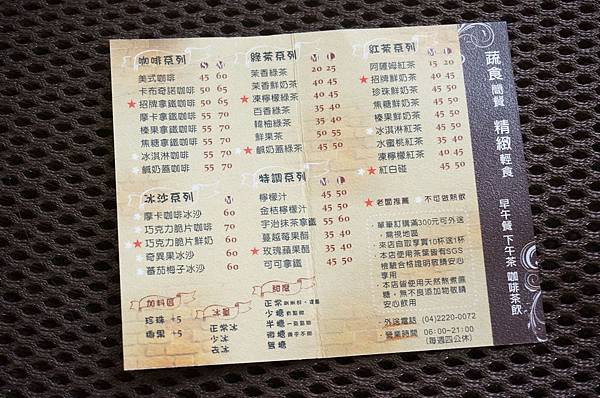 咖啡系列 S M
美式咖啡 45 60
卡布奇諾咖啡 50 65
★招牌拿鐵咖啡 50 65
摩卡拿鐵咖啡 55 70
榛果拿鐵咖啡 55 70
焦糖拿鐵咖啡 55 70
冰淇淋咖啡 55 70
鹹奶蓋咖啡 55 70
冰沙系列 M
摩卡咖啡冰沙 60
巧克力脆片咖啡 70
★巧克力脆片鮮奶 60
奇異果冰沙 60
蕃茄梅子冰沙 60
加料區
珍珠 +5
椰果 +5
冰度
正常
少冰
去冰
綠茶系列 M L
茉香綠茶 20 25
茉香鮮奶茶 40 50
★凍檸檬綠茶 40 50
百香綠茶 35 40
韓柚綠茶 35 40
鮮果茶 50
★鹹奶蓋綠茶 45 50
特調系列 M L
檸檬汁 45 50
金桔檸檬汁 45 50
宇治抹茶拿鐵 55
蔓越莓果醋 35 40
★玫瑰蘋果醋 35 40
可可拿鐵 45 50
甜度
正常
少糖
半糖
微糖
無糖
紅茶系列 M L
阿薩姆紅茶 15 20
★招牌鮮奶茶 40 50
珍珠鮮奶茶 40 50
焦糖鮮奶茶 40 50
榛果鮮奶茶 40 50
冰淇淋紅茶 45 50
水蜜桃紅茶 35 40
凍檸檬紅茶 40 50
★紅白碰 45 50
★老闆推薦 不可做熱飲
·單筆訂購滿300元可外送
，需視地區
·來店自取享買10杯送1杯
·本店使用茶葉皆有SGS
檢驗合格證明敬請安心
享用
·本店皆使用天然熬煮蔗
糖，無不良添加物敬請
安心飲用
·外送電話 (04)2220-0072
·營業時間 06:00~21:00
(每週四公休)
蔬食簡餐 精緻輕食 早午餐 下午茶 咖啡茶飲